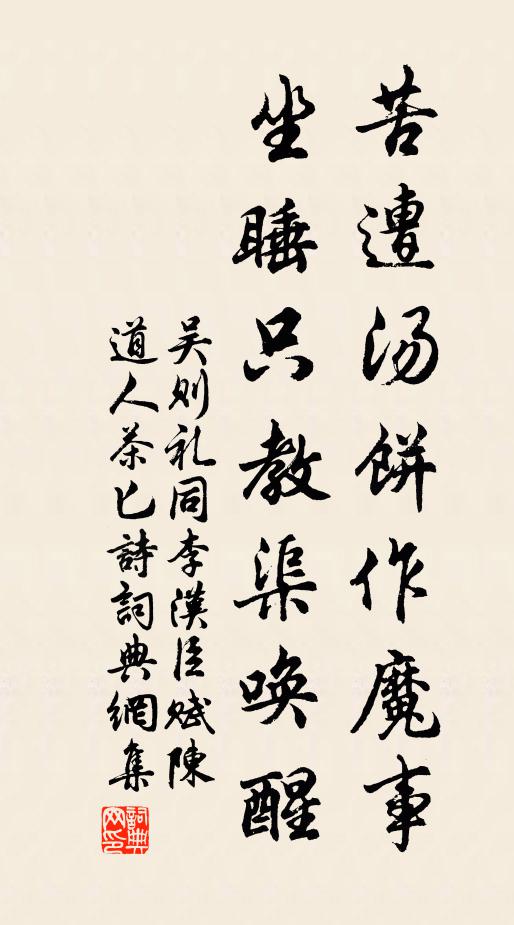 苦遭汤餅作魔事
坐睡只教渠唤醒
吴则礼同李漢臣赋陳
道人茶匕詩詞典網集
詞典
网印